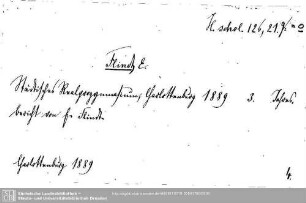 H. schol. 126, 21.
E.
Städtisches Realprogymnasium, Charlottenburg 1889 3. Jahres
bericht von E.
Charlottenburg 1889
4.
Sächsische Landesbibliothek -
Staats- und Universitätsbibliothek Dresden